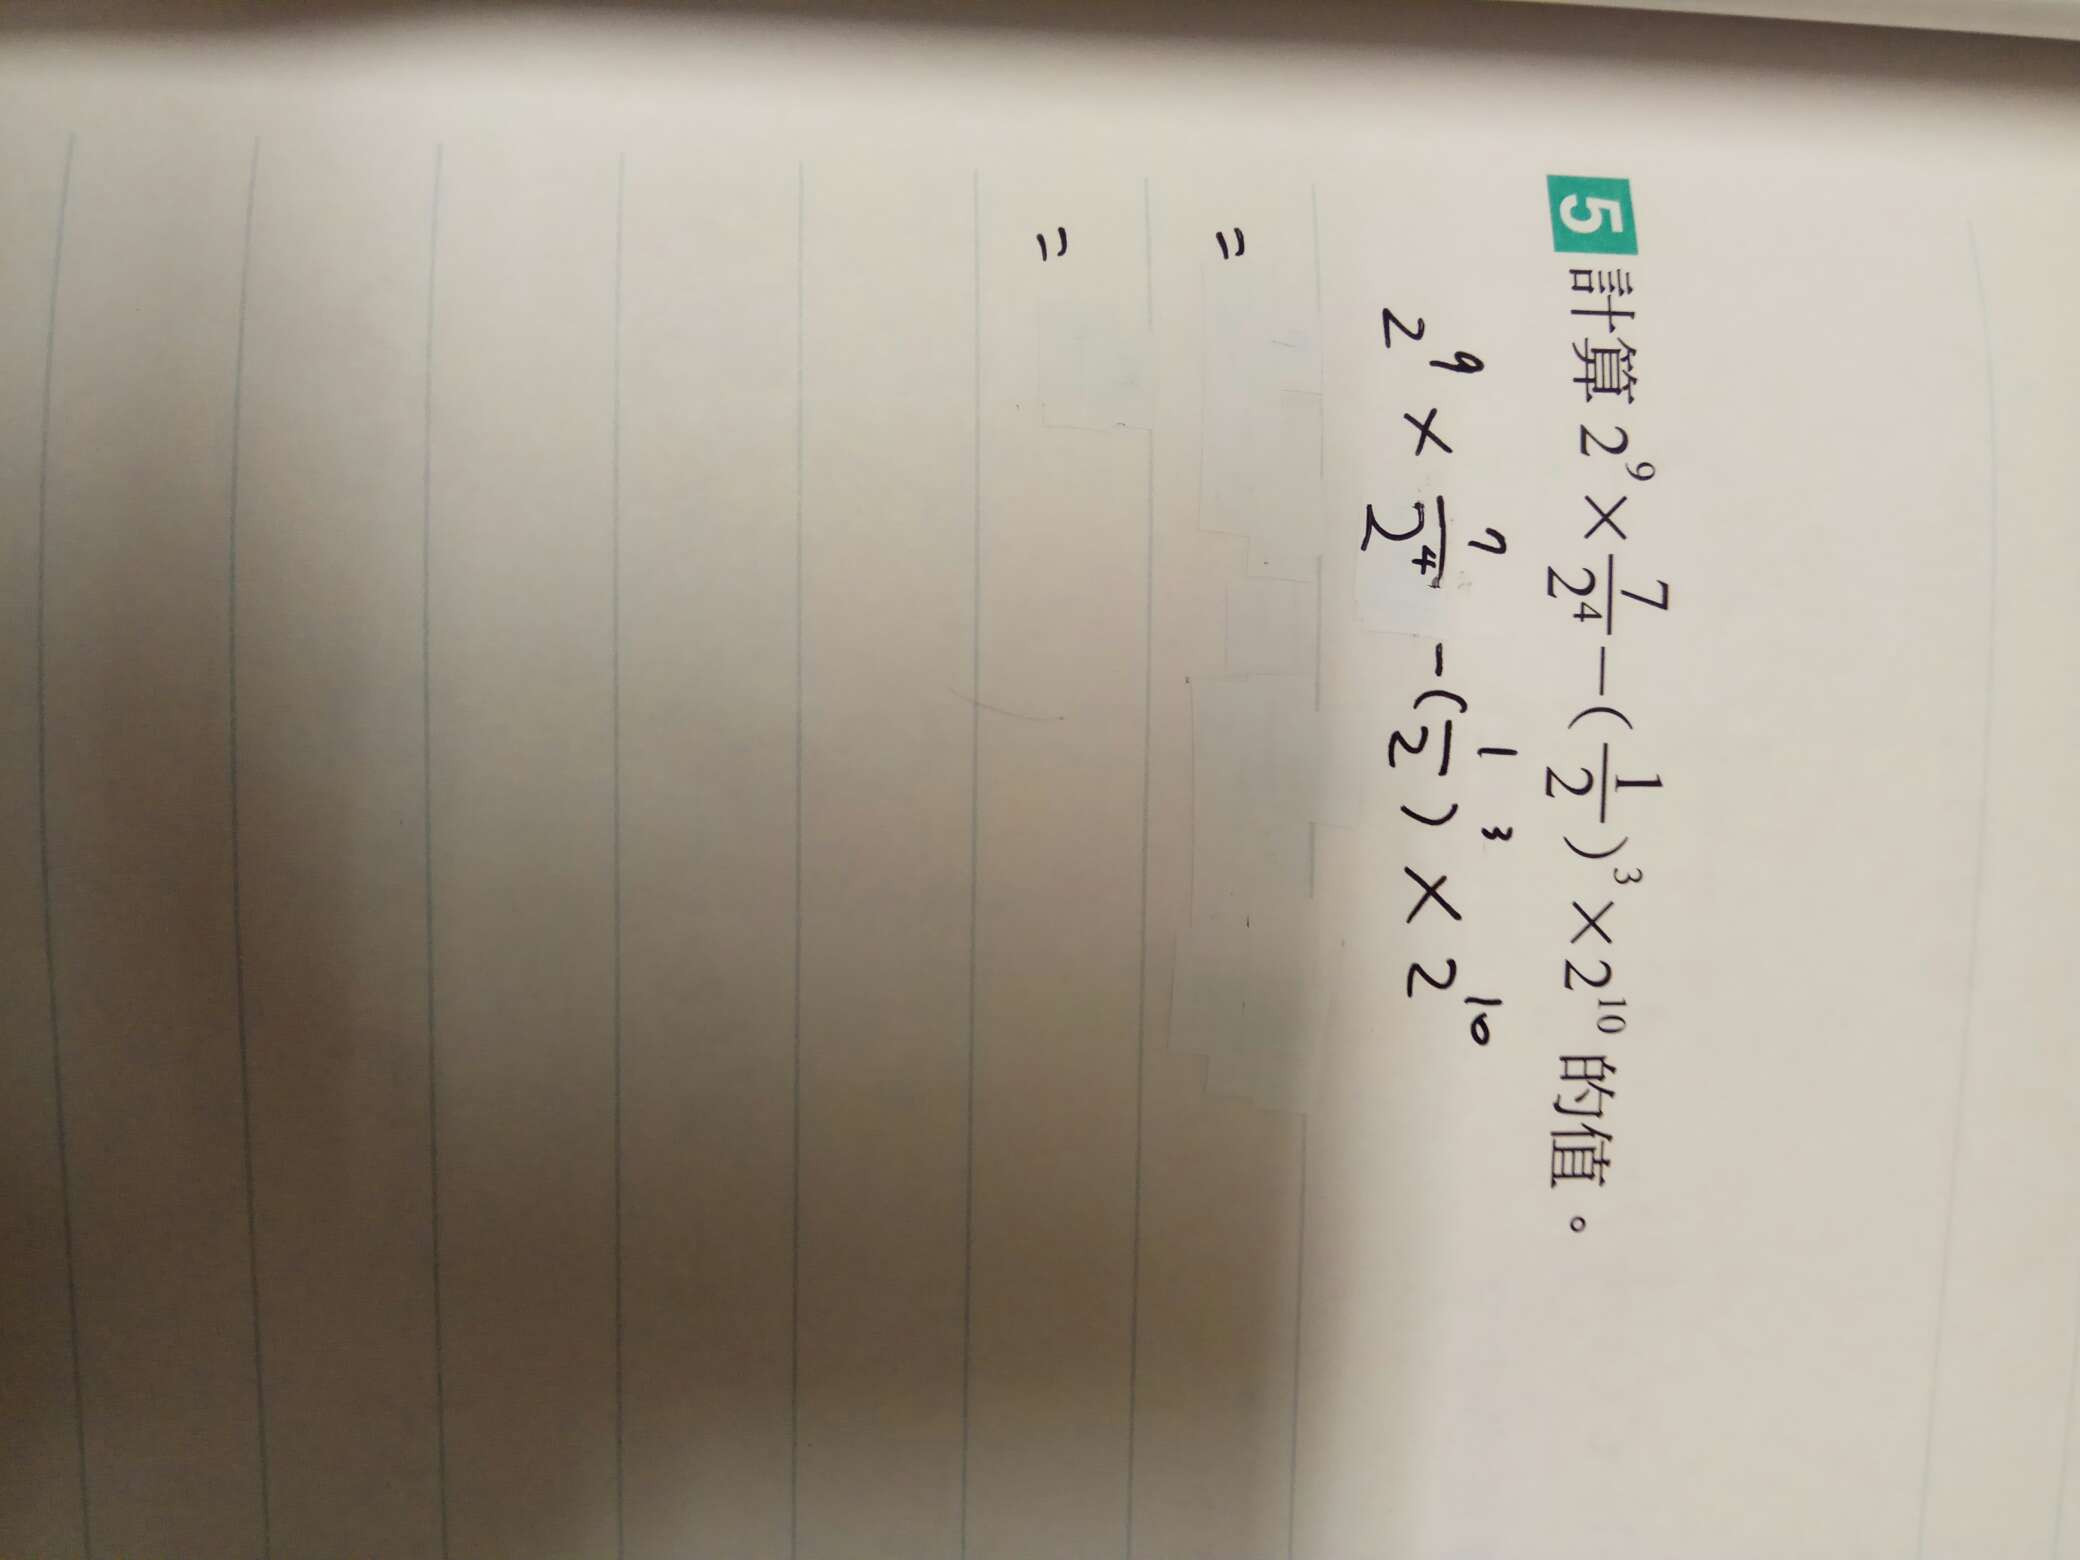 5 計算 2⁹×7/2⁴−(1/2)³×2¹⁰ 的值。
2⁹×7/2⁴−(1/2)³×2¹⁰
=
=